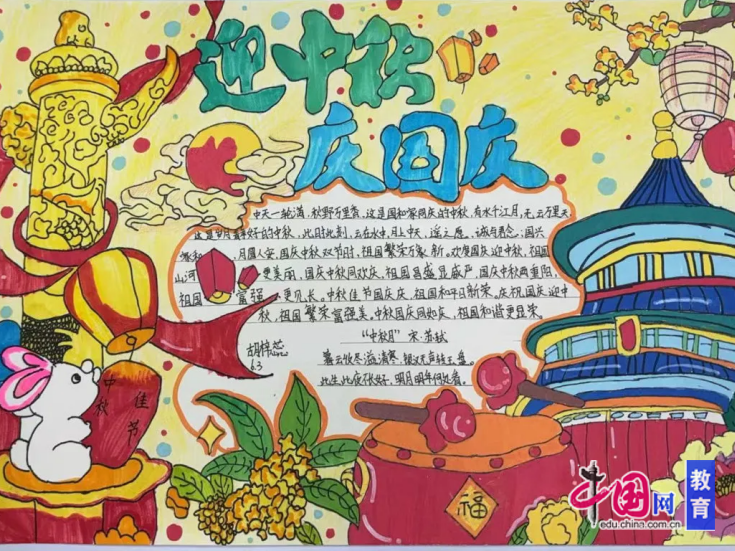 迎中秋
庆国庆
中天一轮满，秋野万里香，这是国和家同庆的中秋，有水千江月，无云万里天
这是岁月静好的中秋，此时此刻，云在水中，月上中天，遥之愿，诚月君念，国兴
家和，月圆人安，国庆中秋双节时，祖国繁荣万象新。欢度国庆迎中秋，祖国
山河更美丽，国庆中秋同欢庆，祖国昌盛显盛产，国庆中秋两重阳，
祖国富强更见长。中秋佳节国庆庆，祖国和平日新荣，庆祝国庆迎中
秋，祖国繁荣富强美，中秋国庆同如庆，祖国和谐更昌荣。
"中秋月" 宋·苏轼
暮云收尽溢清寒，银汉无声转玉盘。
此生此夜不长好，明月明年何处看。
6.3
中秋
佳节
福
中国网
教育
edu.china.com.cn